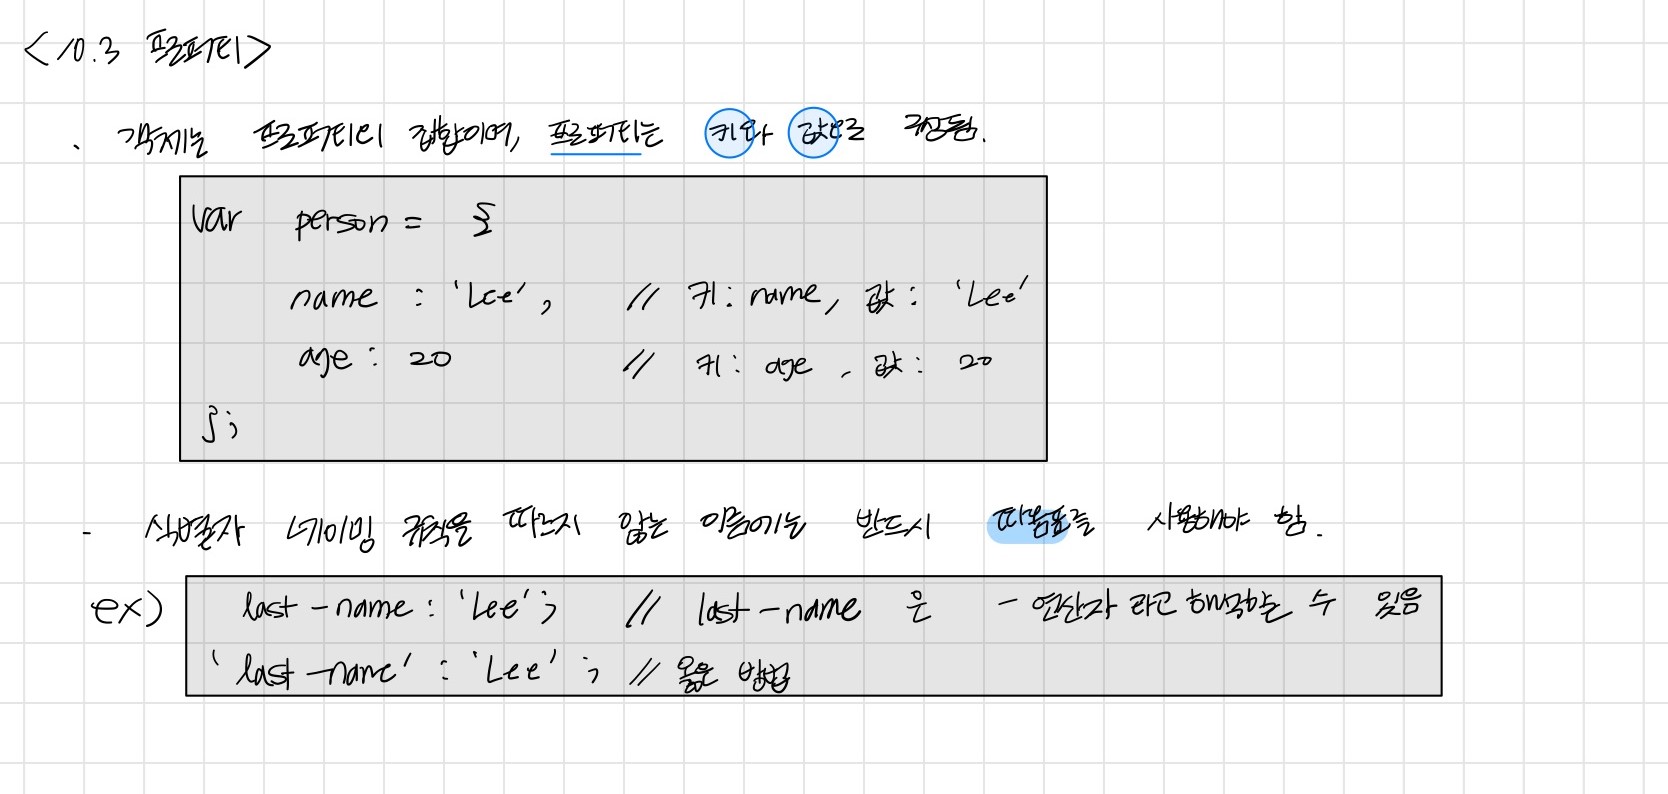 <10.3 프로퍼티>
. 객체는 프로퍼티의 집합이며, 프로퍼티는 키와 값으로 구성됨.
var person = {
name : 'Lee', // 키 : name, 값 : 'Lee'
age : 20 // 키 : age , 값 : 20
};
- 식별자 네이밍 규칙을 따르지 않는 이름에는 반드시 따옴표를 사용해야 함.
ex) last-name : 'Lee'; // last-name 은 - 연산자 라고 해석하는 수 있음
'last-name' : 'Lee' ; // 옳은 방법